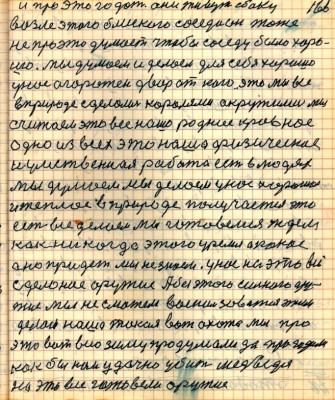 и про этого дот. они живут сбоку 166
возле этого близкого соседион тоже
не проэто думает чтобы соседу было харо-
шо. мы думаем и делаем для себя харашо
унас агорожен двор от кого это мы все
в природе сделоли коралями окрутили мы
считаем это все нашо родние кровное
одно из всех это наша физическая
и умственная работа есть в людях
мы думоем мы делоем унос хорошо
и теплое в природе получается это
есть все делоем мы готовемся ждем
как никогда этого время а какое
оно придет мы незноем. унос на это всё
сделоное оружие Абез этого сильного ору-
жие мы не сможем воспользоватся этим
делом нашо такоя вот охото мы про
это вот всю зиму продумали да прогодом
как бы ном удачно убит медведя
на это все готовели оружие